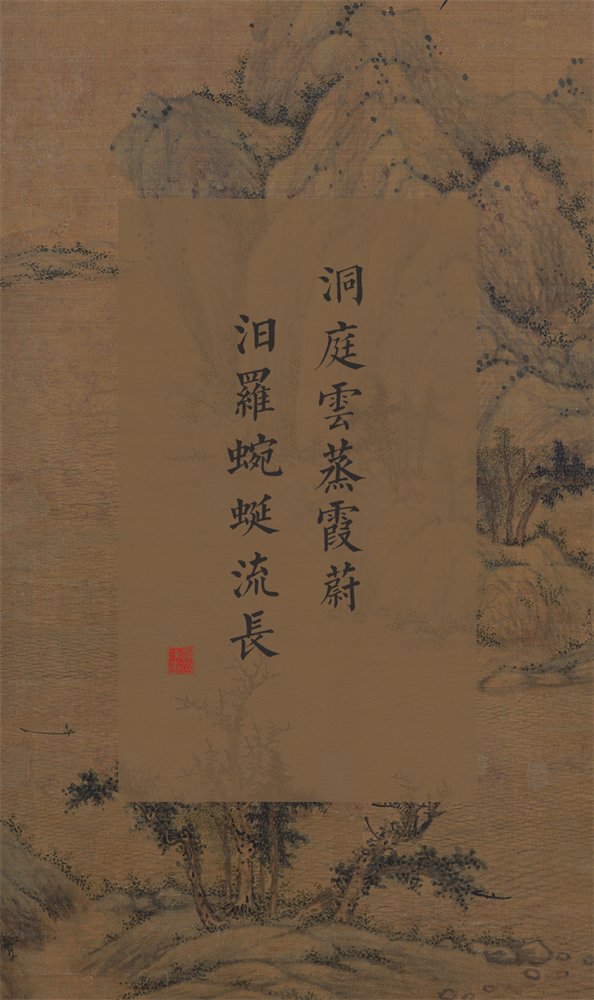 洞庭雲蒸霞蔚
汨羅蜿蜒流長